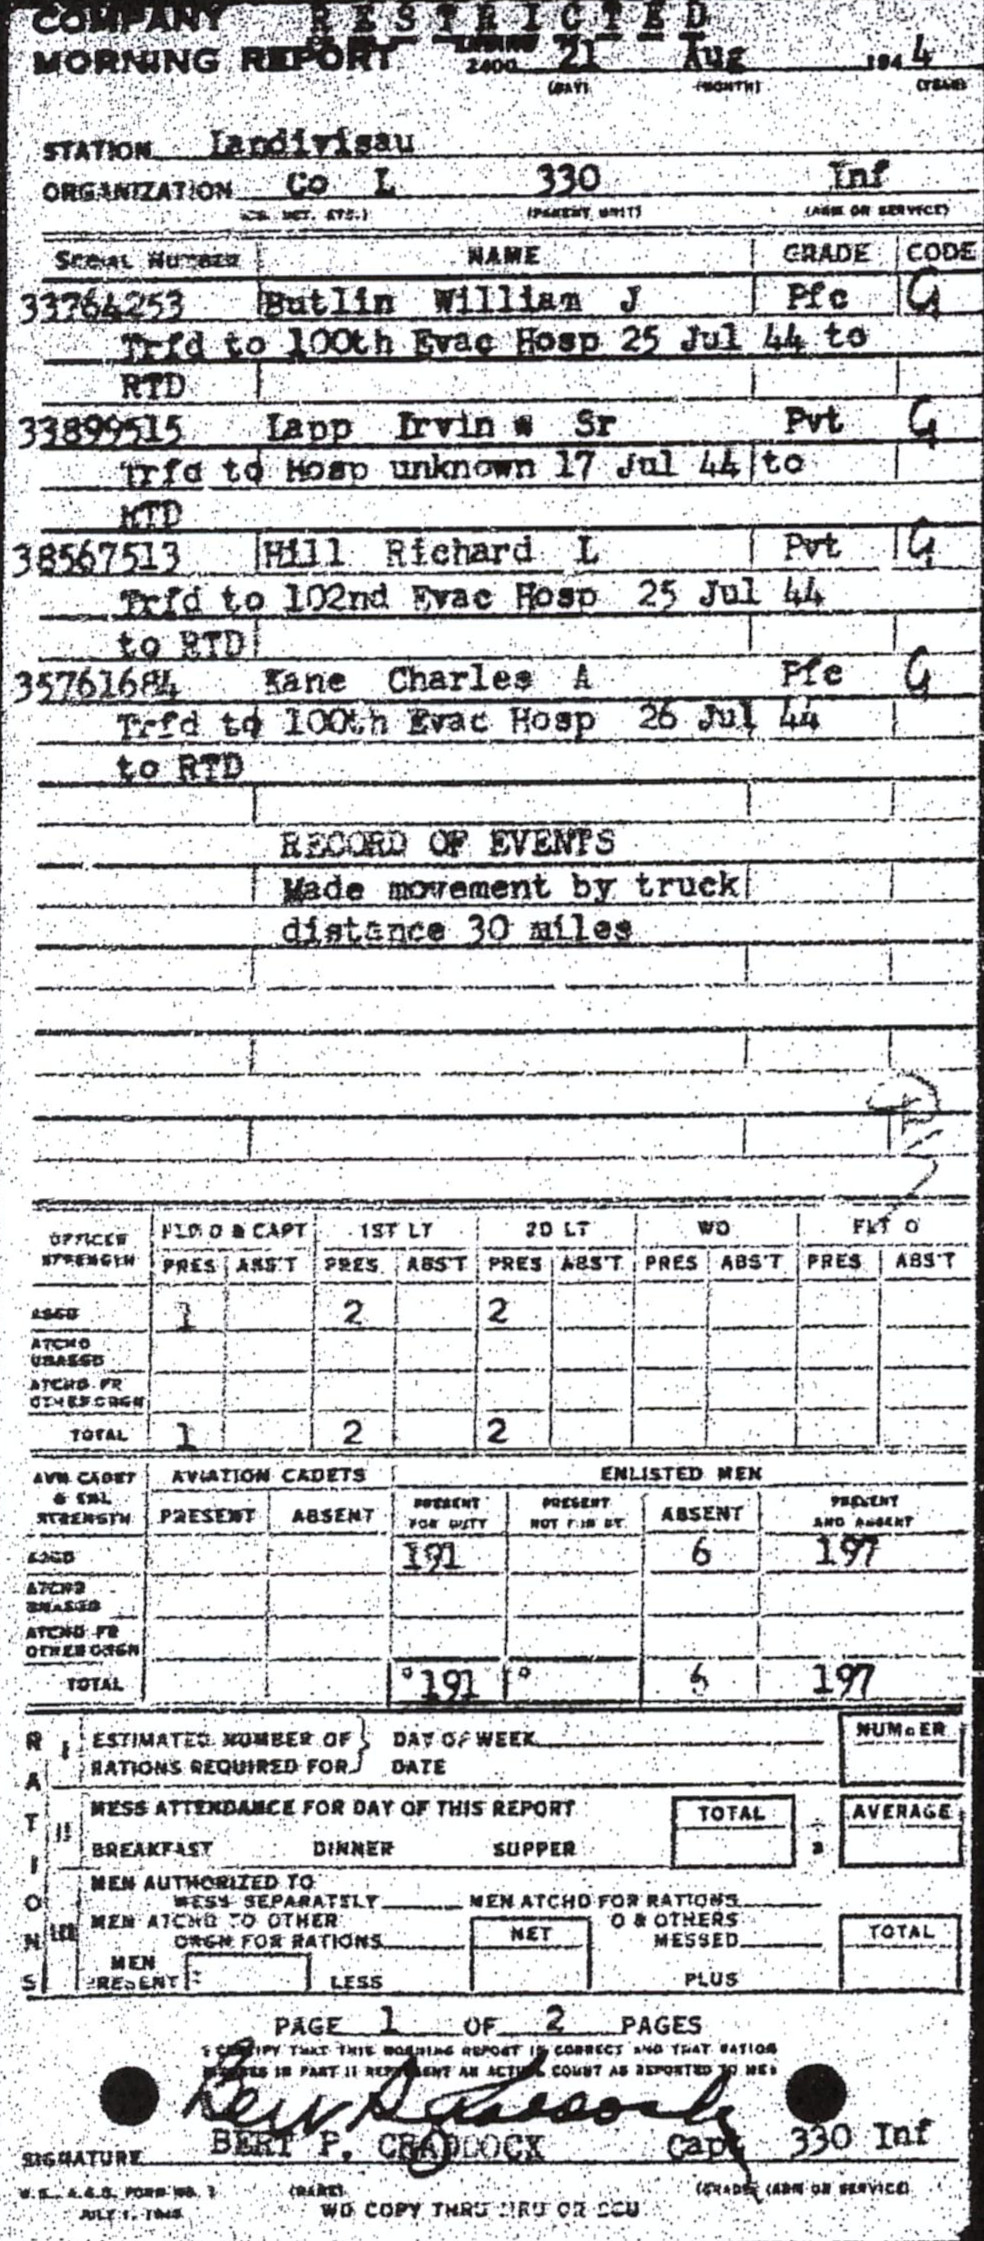 COMPANY RESTRICTED
MORNING REPORT ENDING 2400 21 Aug 1944
(DAY) (MONTH) (YEAR)
STATION Landivisau
ORGANIZATION Co L 330 Inf
(CO. DET. ETC.) (PARENT UNIT) (ARM OR SERVICE)
SERIAL NUMBER NAME GRADE CODE
33764253 Butlin William J Pfc G
Trfd to 100th Evac Hosp 25 Jul 44 to
RTD
33899515 Lapp Irvin Sr Pvt G
Trfd to Hosp unknown 17 Jul 44 to
RTD
38567513 Hill Richard L Pvt G
Trfd to 102nd Evac Hosp 25 Jul 44
to RTD
35761684 Kane Charles A Pfc G
Trfd to 100th Evac Hosp 26 Jul 44
to RTD
RECORD OF EVENTS
Made movement by truck
distance 30 miles
OFFICER STRENGTH FLD O & CAPT 1ST LT 2D LT WO FLT O
PRES ABS'T PRES ABS'T PRES ABS'T PRES ABS'T PRES ABS'T
ASGD 1 2 2
ATCHD UNASGD
ATCHD FR OTHER ORGN
TOTAL 1 2 2
AVN CADET & ENL STRENGTH AVIATION CADETS ENLISTED MEN
PRESENT ABSENT PRESENT FOR DUTY PRESENT NOT FOR DY ABSENT PRESENT AND ABSENT
ASGD 191 6 197
ATCHD UNASGD
ATCHD FR OTHER ORGN
TOTAL 191 6 197
RATIONS
I ESTIMATED NUMBER OF DAY OF WEEK NUMBER
RATIONS REQUIRED FOR DATE
II MESS ATTENDANCE FOR DAY OF THIS REPORT TOTAL ÷ 3 AVERAGE
BREAKFAST DINNER SUPPER
III MEN AUTHORIZED TO
MESS SEPARATELY MEN ATCHD FOR RATIONS
MEN ATCHD TO OTHER NET O & OTHERS TOTAL
ORGN FOR RATIONS MESSED
MEN PRESENT LESS PLUS
PAGE 1 OF 2 PAGES
I CERTIFY THAT THIS MORNING REPORT IS CORRECT AND THAT RATION
FIGURES IN PART II REPRESENT AN ACTUAL COUNT AS REPORTED TO ME
SIGNATURE BERT P. CRADDOCK Capt 330 Inf
W.D., A.G.O. FORM NO. 1 (NAME) (GRADE) (ARM OR SERVICE)
JULY 1, 1943 WD COPY THRU MRU OR SCU